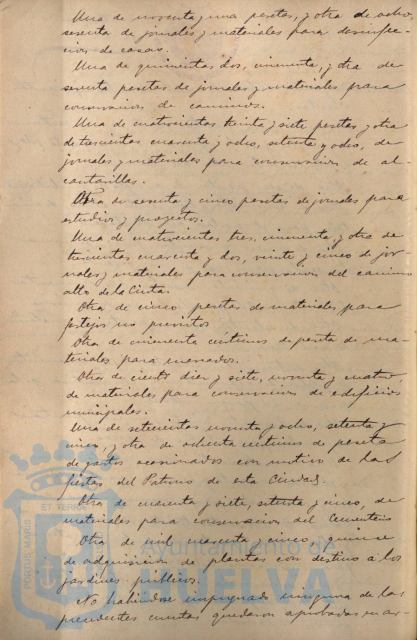 Una de noventa y una pesetas, y otra de ocho
sesenta de jornales y materiales para desinfec-
cion de casas.
Una de quinientas dos, cincuenta, y otra de
sesenta pesetas de jornales y materiales para
conservacion de caminos.
Una de cuatrocientas treinta y siete pesetas, y otra
de trescientas cuarenta y ocho, setenta y ocho, de
jornales y materiales para conservacion de al-
cantarillas.
Otra de sesenta y cinco pesetas de jornales para
estudios y proyectos.
Una de cuatrocientas tres, cincuenta, y otra de
trescientas cuarenta y dos, veinte y cinco de jor
nales y materiales para conservacion del camino
alto de la Cinta.
Otra de cinco pesetas de materiales para
festejos no previstos
Otra de cincuenta centimos de peseta de ma-
teriales para mercados.
Otra de ciento diez y siete, noventa y cuatro,
de materiales para conservacion de edificios
municipales.
Una de setecientas noventa y ocho, setenta y
cinco, y otra de ochenta centimos de peseta
de gastos ocasionados con motivo de las
fiestas del Patrono de esta Ciudad.
Otra de cuarenta y siete, setenta y cinco, de
materiales para conservacion del Cementerio
Otra de mil cuarenta y cinco, quince
de adquisicion de plantas con destino a los
jardines publicos.
No habiendose impugnado ninguna de las
precedentes cuentas quedaron aprobadas en ar-
PORTUS MARIS ET TERRAE
Ayuntamiento de
HUELVA